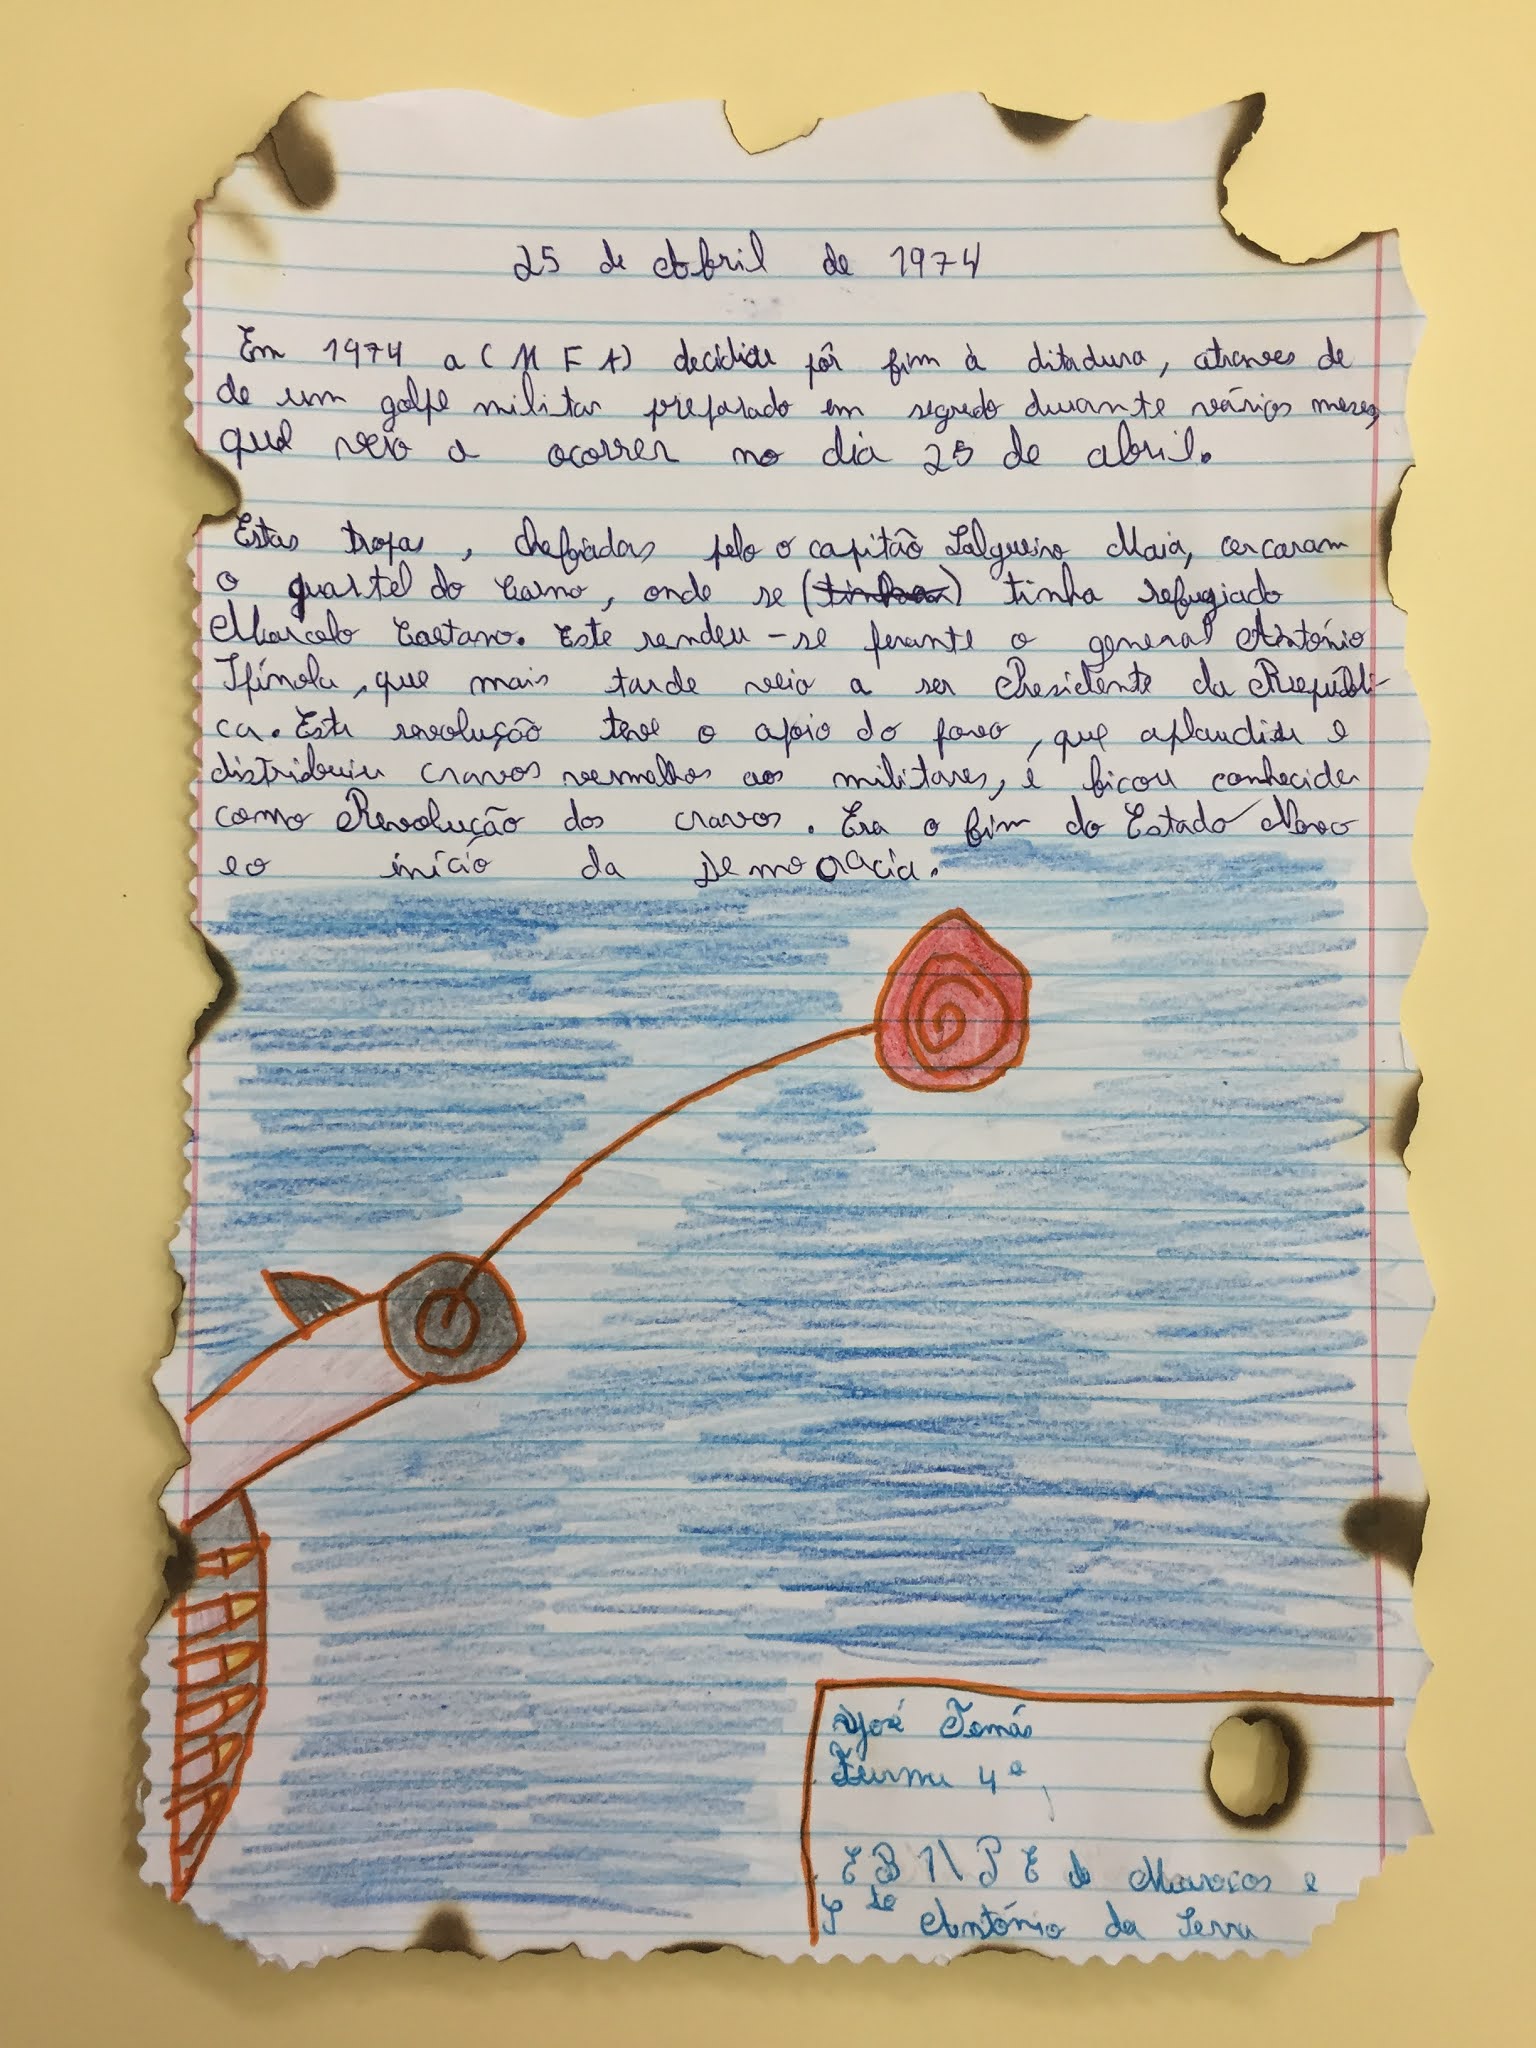 25 de Abril de 1974
Em 1974 a (M F A) decidiu pôr fim à ditadura, atravves de
de um golpe militar preparado em segredo durante vários meses,
que veio a ocorrer no dia 25 de abril.
Estas tropas, chefiadas pelo o capitão Salgueiro Maia, cercaram
o quartel do Carmo, onde se (tinha) tinha refugiado
Marcelo Caetano. Este rendeu-se perante o general António
Spínola, que mais tarde veio a ser Presidente da Repúbli-
ca. Esta revolução teve o apoio do povo, que aplaudiu e
distribuiu cravos vermelhos aos militares, é ficou conhecida
como Revolução dos cravos. Era o fim do Estado Novo
e o início da Democracia.
José Tomás
Turma 4º
E B 1 \ P E de Maroços e
Sto António da Serra